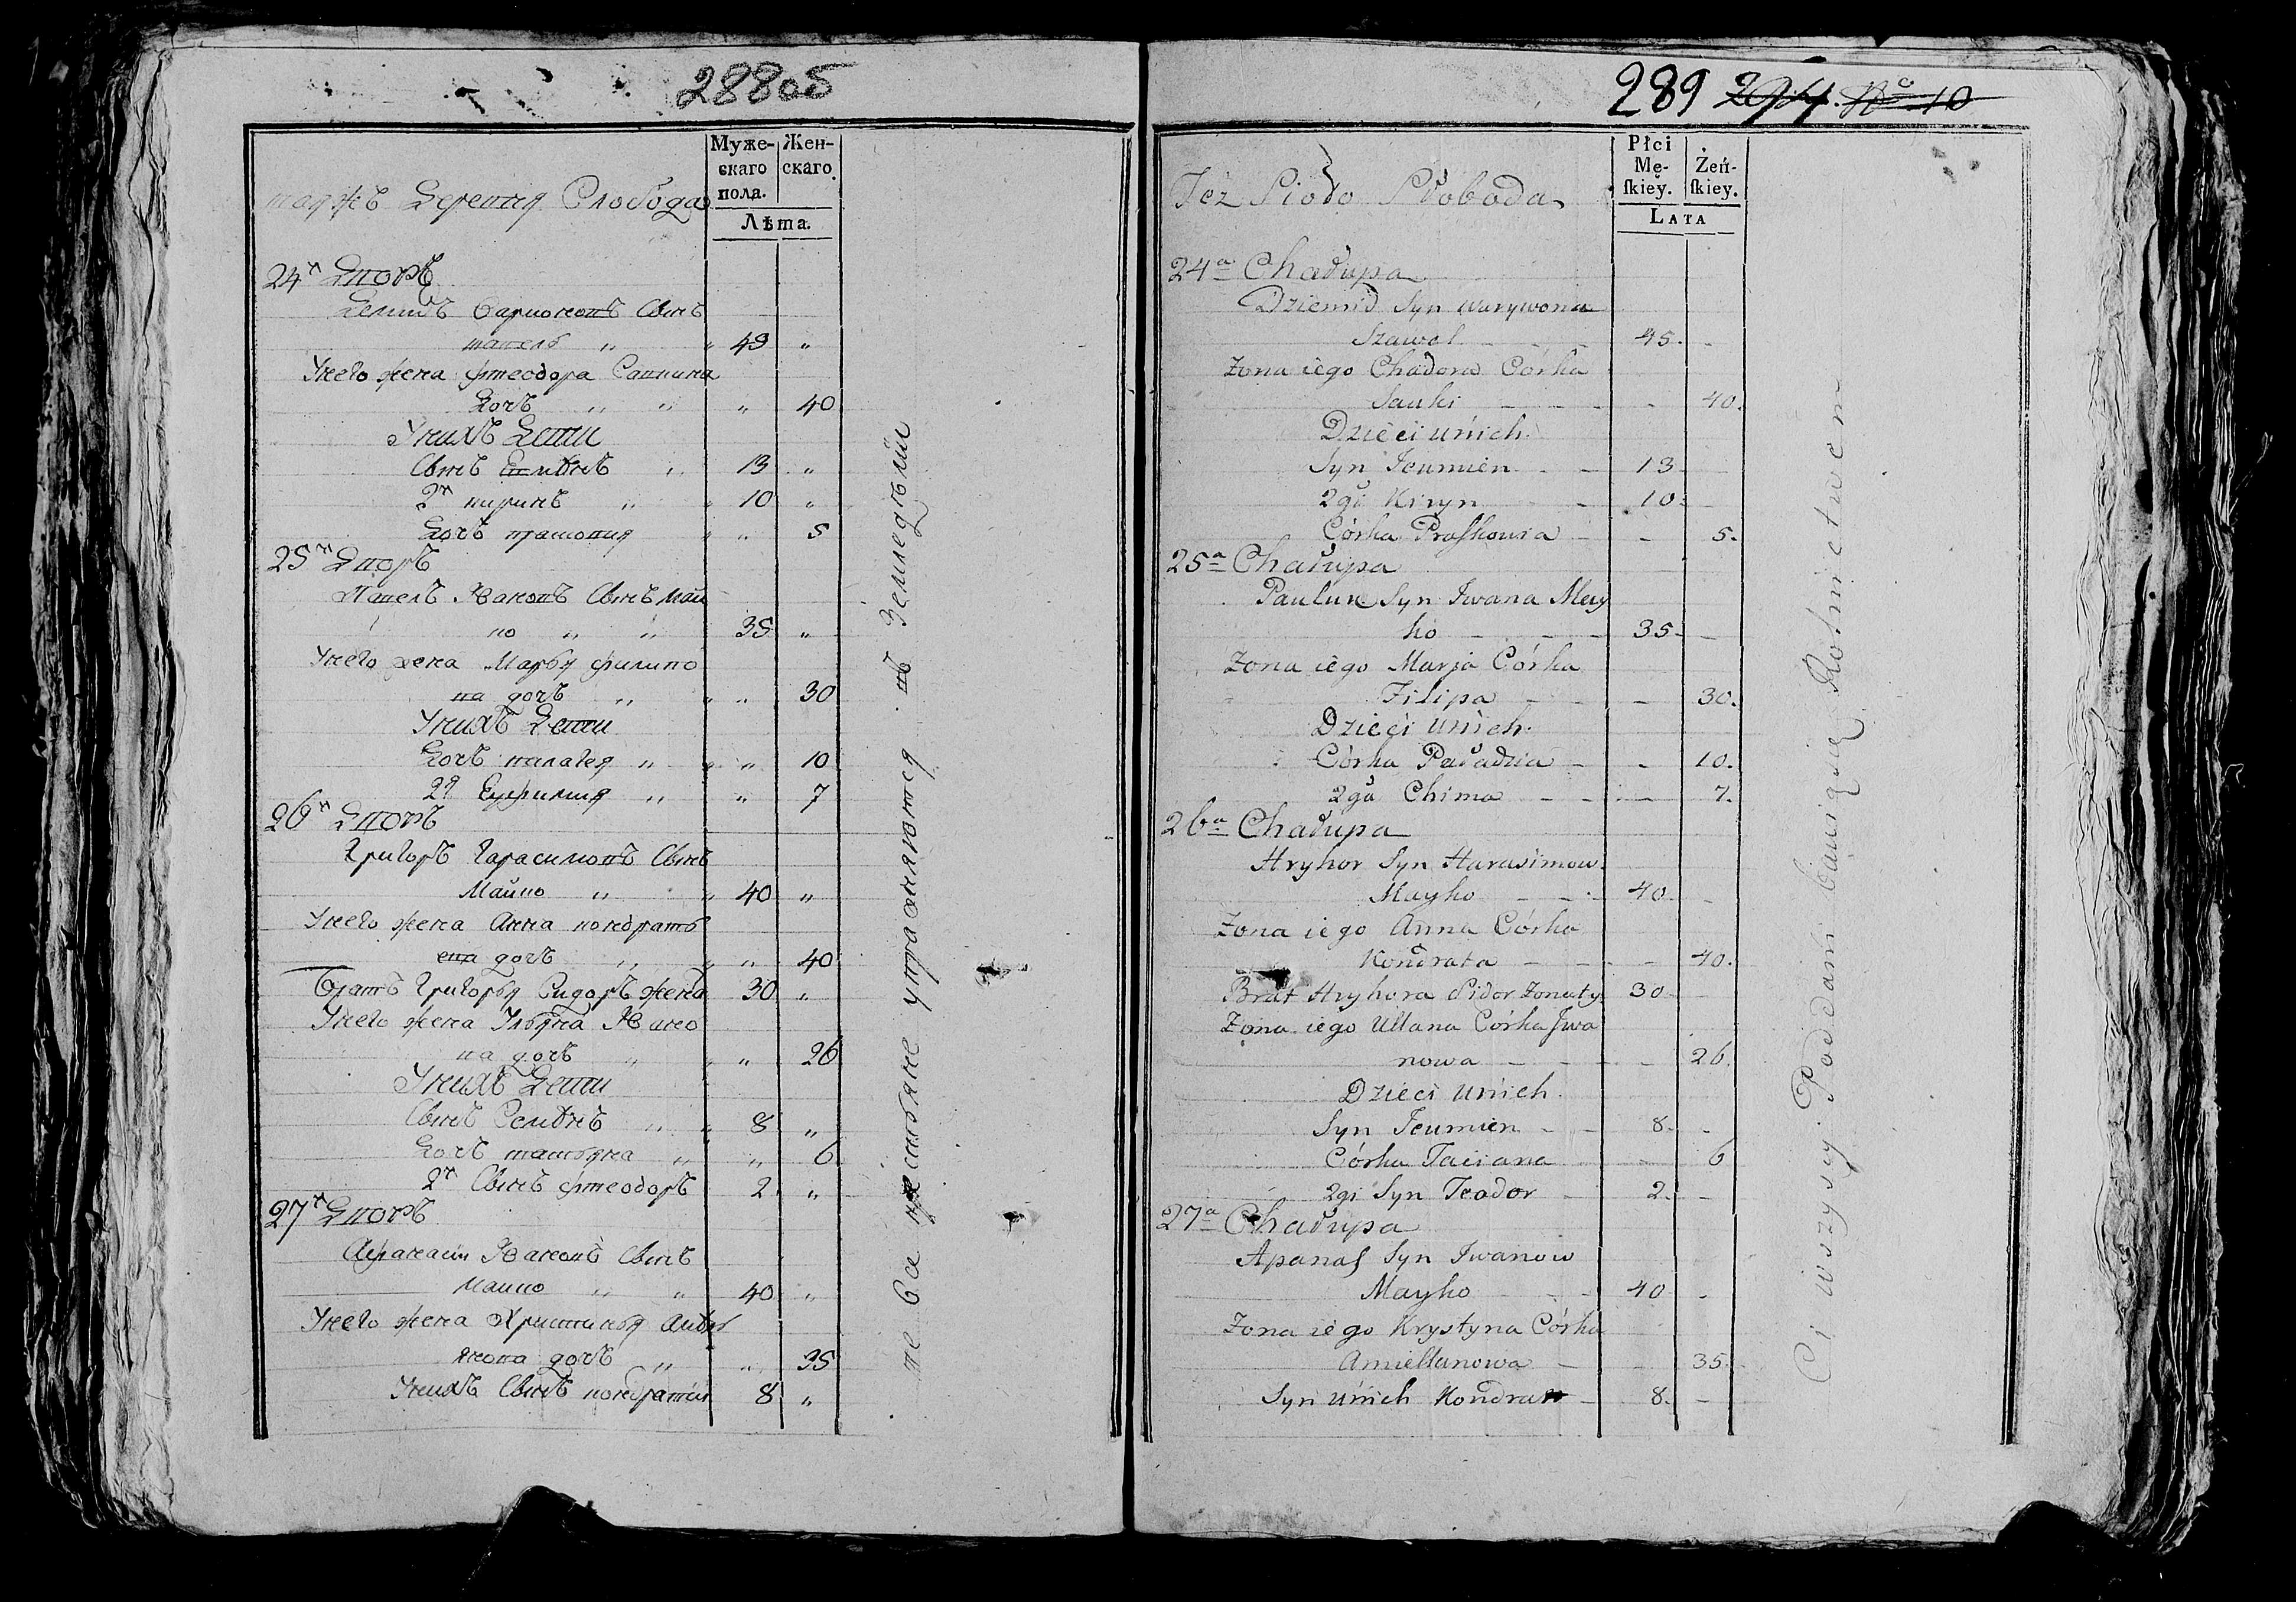 288об
Муже-
скаго
пола.
Жен-
скаго.
Лѣта.
таяжъ Деревня Слобода
24й Дворъ
Демидъ Вариво­новъ Сынъ
49 „
Унего жена Фтеодора Савкина
Дочъ „ „ „ 40
Унихъ Дети
Сынъ „ 13 „
2й кирикъ „ „ 10 „
Дочъ „ „ 5
25й Дворъ
Павелъ Ивановъ Сынъ Май
ко „ „ 35 „
Унего жена Марья филипо
ва дочъ „ „ „ 30
Унихъ Дети
Дочъ палагея „ „ „ 10
2я Ефимия „ „ 7
26й Дворъ
Григоръ Гарасимовъ Сынъ
Майко „ „ 40 „
Унего жена Анна кондрать
ева дочъ „ „ „ 40
Братъ Григорья Сидоръ жена 30 „
Унего жена Ульяна Ивано
ва дочъ „ „ „ 26
Унихъ Дети
Сынъ Семенъ „ „ 8 „
Дочъ татьяна „ „ 6
2й Сынъ фтеодоръ 2 „
27й Дворъ
Афанасий Ивановъ Сынъ
Майко „ „ 40 „
Унего жена Христинья
дочъ „ „ 35
Унихъ Сынъ кондратий 8 „
те ва крестьяне упражняются въ Земледелии
289 294. No 10
Płci
Mę-
ſkiey.
Żeń-
ſkiey.
LATA
Też Sioło Słoboda
24a Chałupa
Dziemid Syn Warywona
Szawel 45.
Zona iego Chadora Córka
Sauki 40.
Dzieci unich.
Syn Jeumien 13
2gi Kiryn 10.
Córka Praſkowia 5.
25a Chałupa
Pauluk Syn Jwana May
ko 35.
Zona iego Marja Córka
Filipa 30.
Dzieci unich.
Córka Paładzia 10.
2ga Chima 7.
26a Chałupa
Hryhor Syn Harasimow
Mayko 40
Zona iego Anna Córka
Kondrata 40.
Brat Hryhora Sidor Zonaty 30
Zona iego Ullana Córka Jwa
nowa 26.
Dzieci unich.
Syn Jeumien 8.
Córka Taciana 6
2gi Syn Teodor 2.
27a Chałupa
Apanaſ Syn Jwanow
Mayko 40
Zona iego Krystyna Córka
Amiellanowa 35.
Syn unich Kondrat 8.
Ci wszyscy Poddani bawią się Rolnictwem